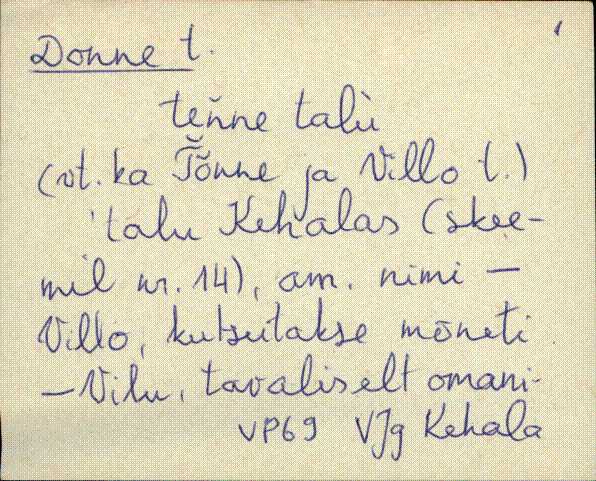 1
Donne t.
teňne talù
(vt. ka Tõnne ja Villo t.)
'talu Kehalas (skee-
mil nr. 14), am. nimi —
Villo, kutsutakse mõneti
— Vilu, tavaliselt omani-
VP69 VJg Kehala